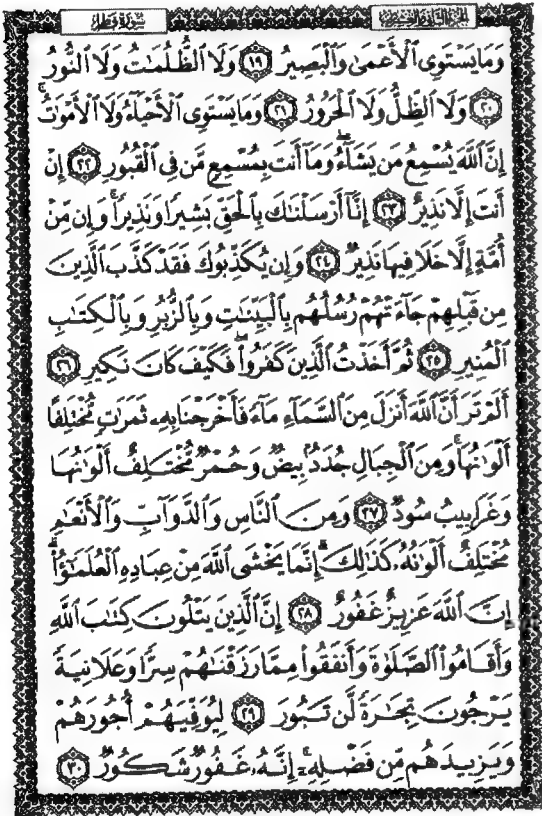 سورة فاطر الجزء الثاني والعشرون
وَمَا يَسْتَوِى ٱلْأَعْمَىٰ وَٱلْبَصِيرُ ۝١٩ وَلَا ٱلظُّلُمَٰتُ وَلَا ٱلنُّورُ
۝٢٠ وَلَا ٱلظِّلُّ وَلَا ٱلْحَرُورُ ۝٢١ وَمَا يَسْتَوِى ٱلْأَحْيَآءُ وَلَا ٱلْأَمْوَٰتُ ۚ
إِنَّ ٱللَّهَ يُسْمِعُ مَن يَشَآءُ ۖ وَمَآ أَنتَ بِمُسْمِعٍ مَّن فِى ٱلْقُبُورِ ۝٢٢ إِنْ
أَنتَ إِلَّا نَذِيرٌ ۝٢٣ إِنَّآ أَرْسَلْنَٰكَ بِٱلْحَقِّ بَشِيرًا وَنَذِيرًا ۚ وَإِن مِّنْ
أُمَّةٍ إِلَّا خَلَا فِيهَا نَذِيرٌ ۝٢٤ وَإِن يُكَذِّبُوكَ فَقَدْ كَذَّبَ ٱلَّذِينَ
مِن قَبْلِهِمْ جَآءَتْهُمْ رُسُلُهُم بِٱلْبَيِّنَٰتِ وَبِٱلزُّبُرِ وَبِٱلْكِتَٰبِ
ٱلْمُنِيرِ ۝٢٥ ثُمَّ أَخَذْتُ ٱلَّذِينَ كَفَرُوا۟ ۖ فَكَيْفَ كَانَ نَكِيرِ ۝٢٦
أَلَمْ تَرَ أَنَّ ٱللَّهَ أَنزَلَ مِنَ ٱلسَّمَآءِ مَآءً فَأَخْرَجْنَا بِهِۦ ثَمَرَٰتٍ مُّخْتَلِفًا
أَلْوَٰنُهَا ۚ وَمِنَ ٱلْجِبَالِ جُدَدٌۢ بِيضٌ وَحُمْرٌ مُّخْتَلِفٌ أَلْوَٰنُهَا
وَغَرَابِيبُ سُودٌ ۝٢٧ وَمِنَ ٱلنَّاسِ وَٱلدَّوَآبِّ وَٱلْأَنْعَٰمِ
مُخْتَلِفٌ أَلْوَٰنُهُۥ كَذَٰلِكَ ۗ إِنَّمَا يَخْشَى ٱللَّهَ مِنْ عِبَادِهِ ٱلْعُلَمَٰٓؤُا۟ ۗ
إِنَّ ٱللَّهَ عَزِيزٌ غَفُورٌ ۝٢٨ إِنَّ ٱلَّذِينَ يَتْلُونَ كِتَٰبَ ٱللَّهِ
وَأَقَامُوا۟ ٱلصَّلَوٰةَ وَأَنفَقُوا۟ مِمَّا رَزَقْنَٰهُمْ سِرًّا وَعَلَانِيَةً
يَرْجُونَ تِجَٰرَةً لَّن تَبُورَ ۝٢٩ لِيُوَفِّيَهُمْ أُجُورَهُمْ
وَيَزِيدَهُم مِّن فَضْلِهِۦٓ ۚ إِنَّهُۥ غَفُورٌ شَكُورٌ ۝٣٠